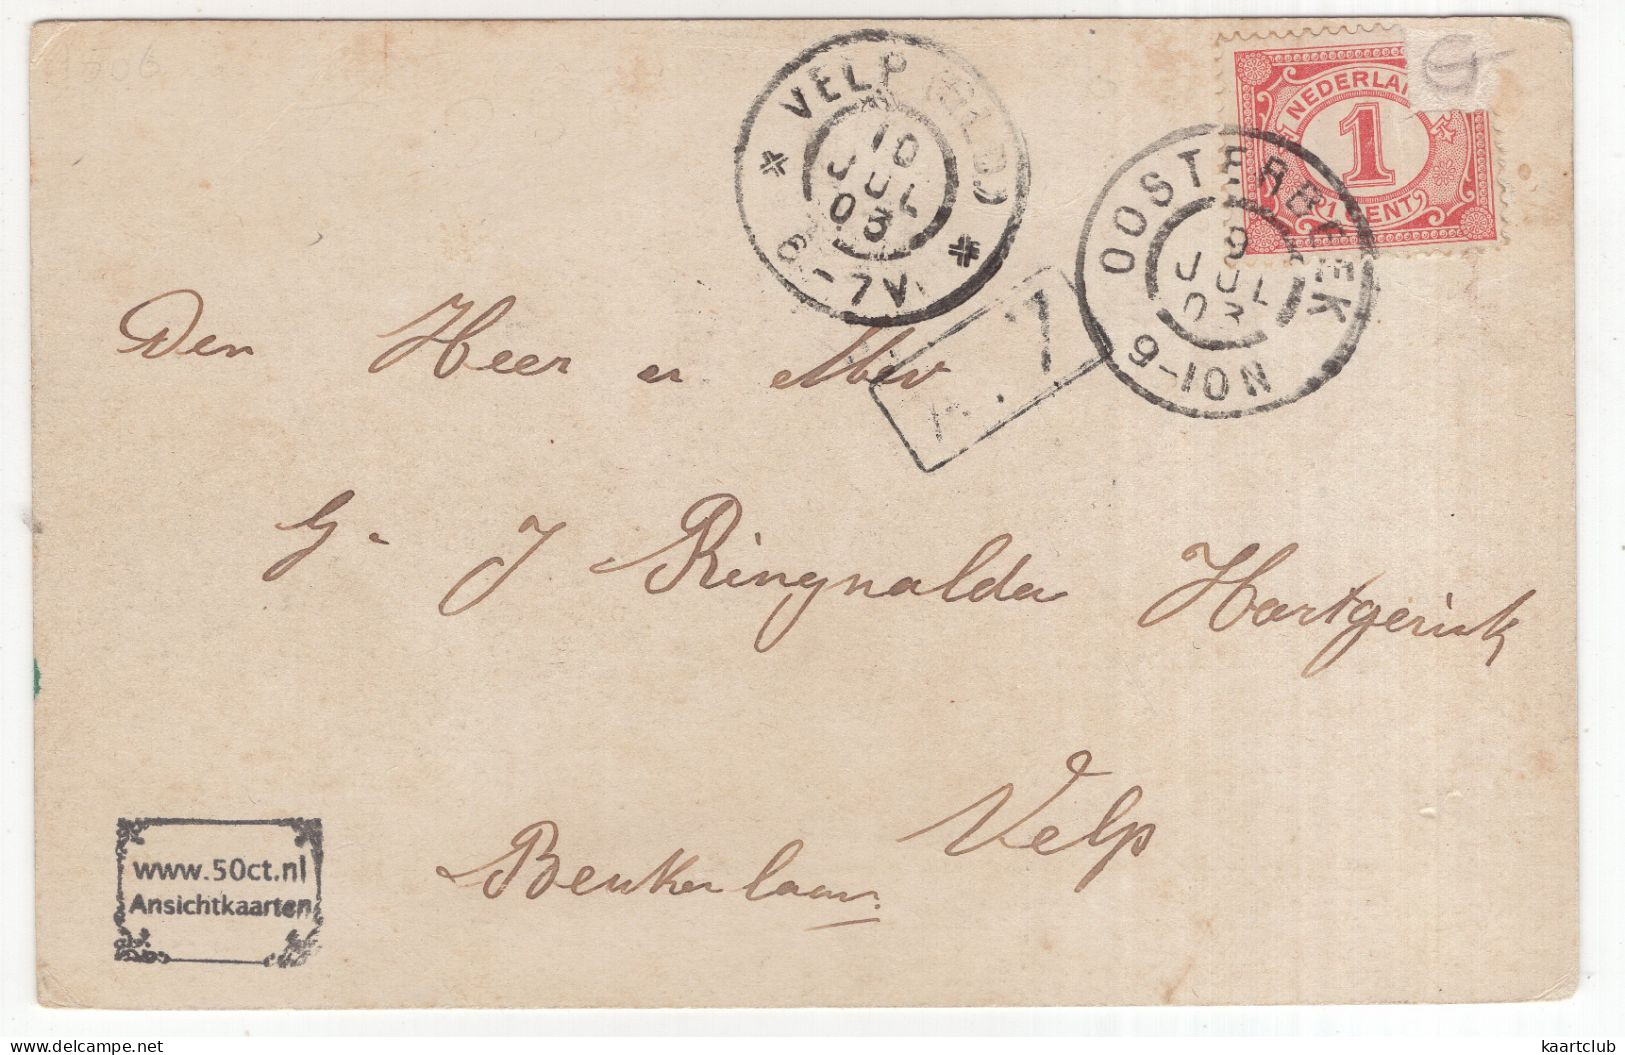 1506
VELP (GLD.)
10
JUL
03
6-7V.
NEDERLA
1
1 CENT
OOSTERBEEK
9
JUL
03
9-10N
Den Heer en Mev
G. J Ringnalda Hartgerink
Velp
Beukenlaan.
www.50ct.nl
Ansichtkaarten
kaartclub